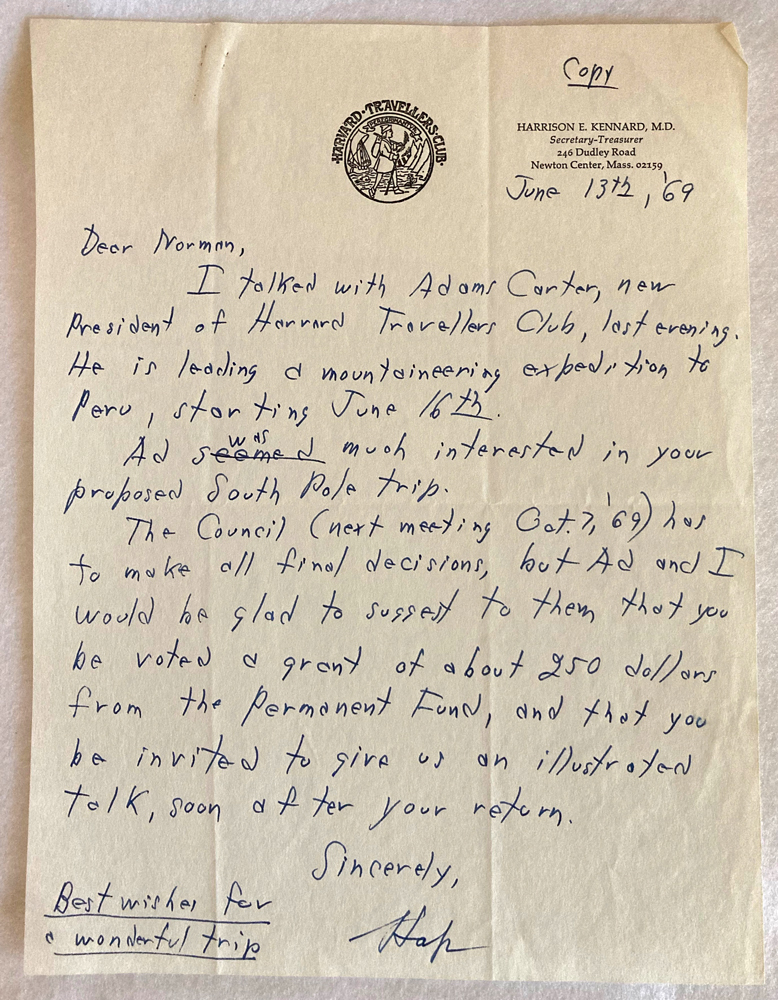 Copy
HARVARD·TRAVELLERS·CLUB·
HARRISON E. KENNARD, M.D.
Secretary-Treasurer
246 Dudley Road
Newton Center, Mass. 02159
June 13th, '69
Dear Norman,
I talked with Adams Carter, new
President of Harvard Travellers Club, last evening.
He is leading a mountaineering expedition to
Peru, starting June 16th.
was
Ad seemed much interested in your
proposed South Pole trip.
The Council (next meeting Oct. 7, '69) has
to make all final decisions, but Ad and I
would be glad to suggest to them that you
be voted a grant of about 250 dollars
from the Permanent Fund, and that you
be invited to give us an illustrated
talk, soon after your return.
Sincerely,
Best wishes for
a wonderful trip
Hap